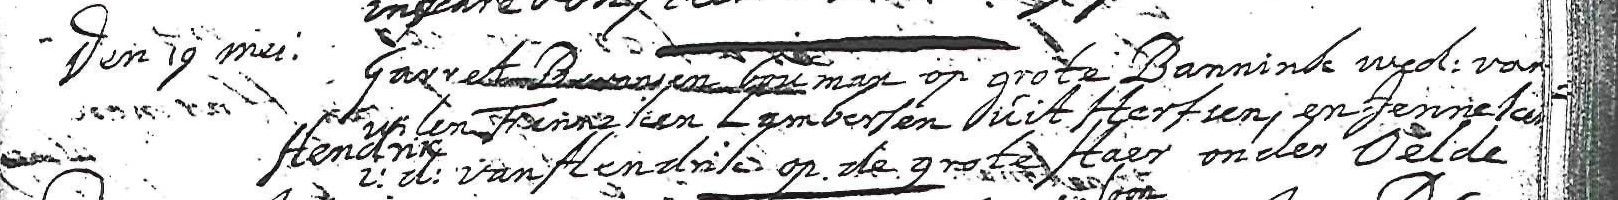 Den 19 mei: Garret Berensen bouman op grote Bannink wed: van
wilen Fenneken Lambersen uit Hertsen, en Jenneken
Hendrik
i: d: van Hendrik op de grote Haer onder Oelde